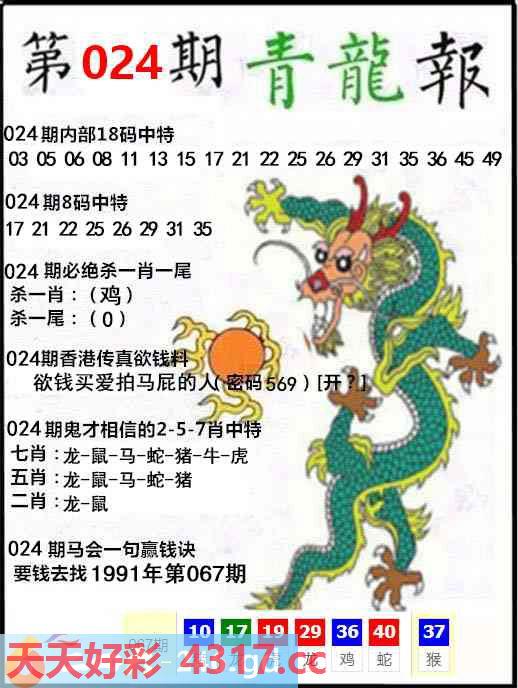 第024期 青龍報
024期内部18码中特
03 05 06 08 11 13 15 17 21 22 25 26 29 31 35 36 45 49
024期8码中特
17 21 22 25 26 29 31 35
024 期必绝杀一肖一尾
杀一肖：（鸡）
杀一尾：（0）
024期香港传真欲钱料
欲钱买爱拍马屁的人（密码569）[开？]
024期鬼才相信的2-5-7肖中特
七肖：龙-鼠-马-蛇-猪-牛-虎
五肖：龙-鼠-马-蛇-猪
二肖：龙-鼠
024 期马会一句赢钱诀
要钱去找1991年第067期
067期 10 17 19 29 36 40 37
龙 鸡 蛇 猴
天天好彩 4317.cc